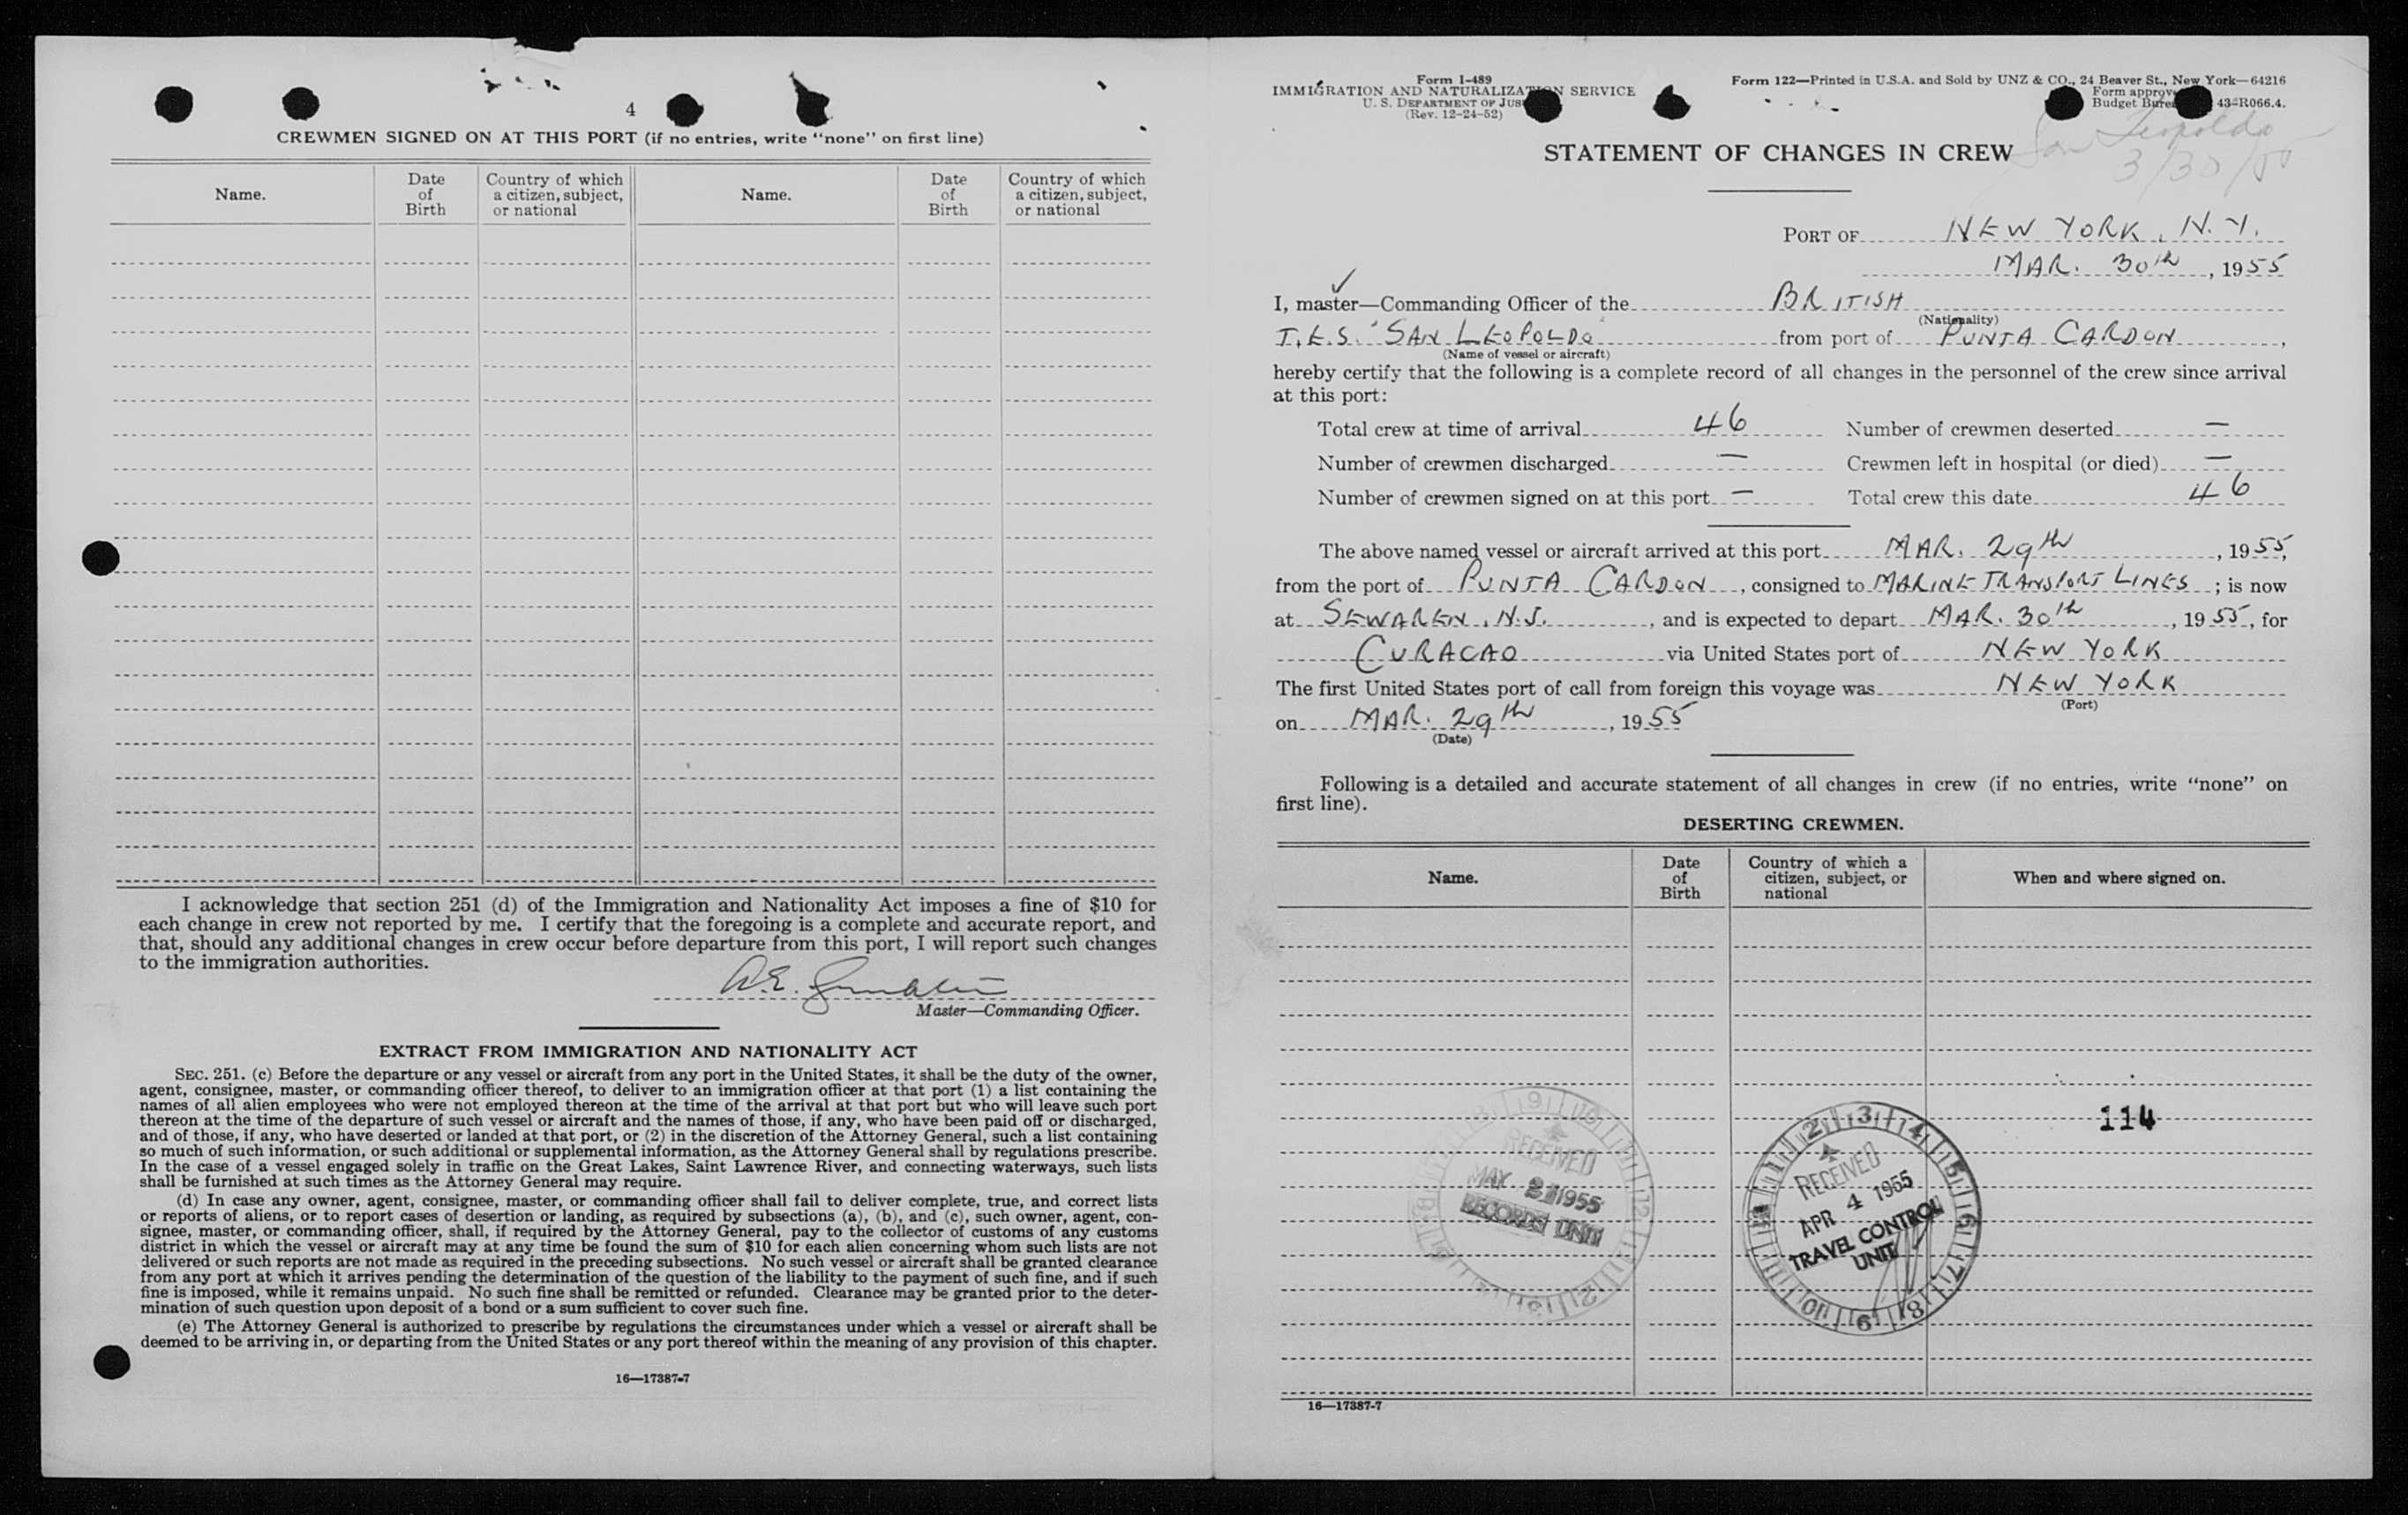 4
CREWMEN SIGNED ON AT THIS PORT (if no entries, write "none" on first line)
Name.
Date of Birth
Country of which a citizen, subject, or national
Name.
Date of Birth
Country of which a citizen, subject, or national
I acknowledge that section 251 (d) of the Immigration and Nationality Act imposes a fine of $10 for
each change in crew not reported by me. I certify that the foregoing is a complete and accurate report, and
that, should any additional changes in crew occur before departure from this port, I will report such changes
to the immigration authorities.
A.E.
Master—Commanding Officer.
EXTRACT FROM IMMIGRATION AND NATIONALITY ACT
SEC. 251. (c) Before the departure or any vessel or aircraft from any port in the United States, it shall be the duty of the owner,
agent, consignee, master, or commanding officer thereof, to deliver to an immigration officer at that port (1) a list containing the
names of all alien employees who were not employed thereon at the time of the arrival at that port but who will leave such port
thereon at the time of the departure of such vessel or aircraft and the names of those, if any, who have been paid off or discharged,
and of those, if any, who have deserted or landed at that port, or (2) in the discretion of the Attorney General, such a list containing
so much of such information, or such additional or supplemental information, as the Attorney General shall by regulations prescribe.
In the case of a vessel engaged solely in traffic on the Great Lakes, Saint Lawrence River, and connecting waterways, such lists
shall be furnished at such times as the Attorney General may require.
(d) In case any owner, agent, consignee, master, or commanding officer shall fail to deliver complete, true, and correct lists
or reports of aliens, or to report cases of desertion or landing, as required by subsections (a), (b), and (c), such owner, agent, con-
signee, master, or commanding officer, shall, if required by the Attorney General, pay to the collector of customs of any customs
district in which the vessel or aircraft may at any time be found the sum of $10 for each alien concerning whom such lists are not
delivered or such reports are not made as required in the preceding subsections. No such vessel or aircraft shall be granted clearance
from any port at which it arrives pending the determination of the question of the liability to the payment of such fine, and if such
fine is imposed, while it remains unpaid. No such fine shall be remitted or refunded. Clearance may be granted prior to the deter-
mination of such question upon deposit of a bond or a sum sufficient to cover such fine.
(e) The Attorney General is authorized to prescribe by regulations the circumstances under which a vessel or aircraft shall be
deemed to be arriving in, or departing from the United States or any port thereof within the meaning of any provision of this chapter.
16—17387-7
Form I-489
IMMIGRATION AND NATURALIZATION SERVICE
U. S. DEPARTMENT OF JUS
(Rev. 12-24-52)
Form 122—Printed in U.S.A. and Sold by UNZ & CO., 24 Beaver St., New York—64216
Form approv
Budget Burea 43-R066.4.
San Leopoldo
3/30/55
STATEMENT OF CHANGES IN CREW
PORT OF NEW YORK, N.Y.
MAR. 30th, 1955
✓
I, master—Commanding Officer of the BRITISH
(Nationality)
T.E.S. "SAN LEOPOLDO" from port of PUNTA CARDON,
(Name of vessel or aircraft)
hereby certify that the following is a complete record of all changes in the personnel of the crew since arrival
at this port:
Total crew at time of arrival 46 Number of crewmen deserted —
Number of crewmen discharged — Crewmen left in hospital (or died) —
Number of crewmen signed on at this port — Total crew this date 46
The above named vessel or aircraft arrived at this port MAR. 29th, 1955,
from the port of PUNTA CARDON, consigned to MARINE TRANSPORT LINES; is now
at SEWAREN, N.J., and is expected to depart MAR. 30th, 1955, for
CURACAO via United States port of NEW YORK
The first United States port of call from foreign this voyage was NEW YORK
(Port)
on MAR. 29th, 1955
(Date)
Following is a detailed and accurate statement of all changes in crew (if no entries, write "none" on
first line).
DESERTING CREWMEN.
Name.
Date of Birth
Country of which a citizen, subject, or national
When and where signed on.
114
RECEIVED
MAY 1955
RECORDS UNIT
RECEIVED
APR 4 1955
TRAVEL CONTROL
UNIT
16—17387-7